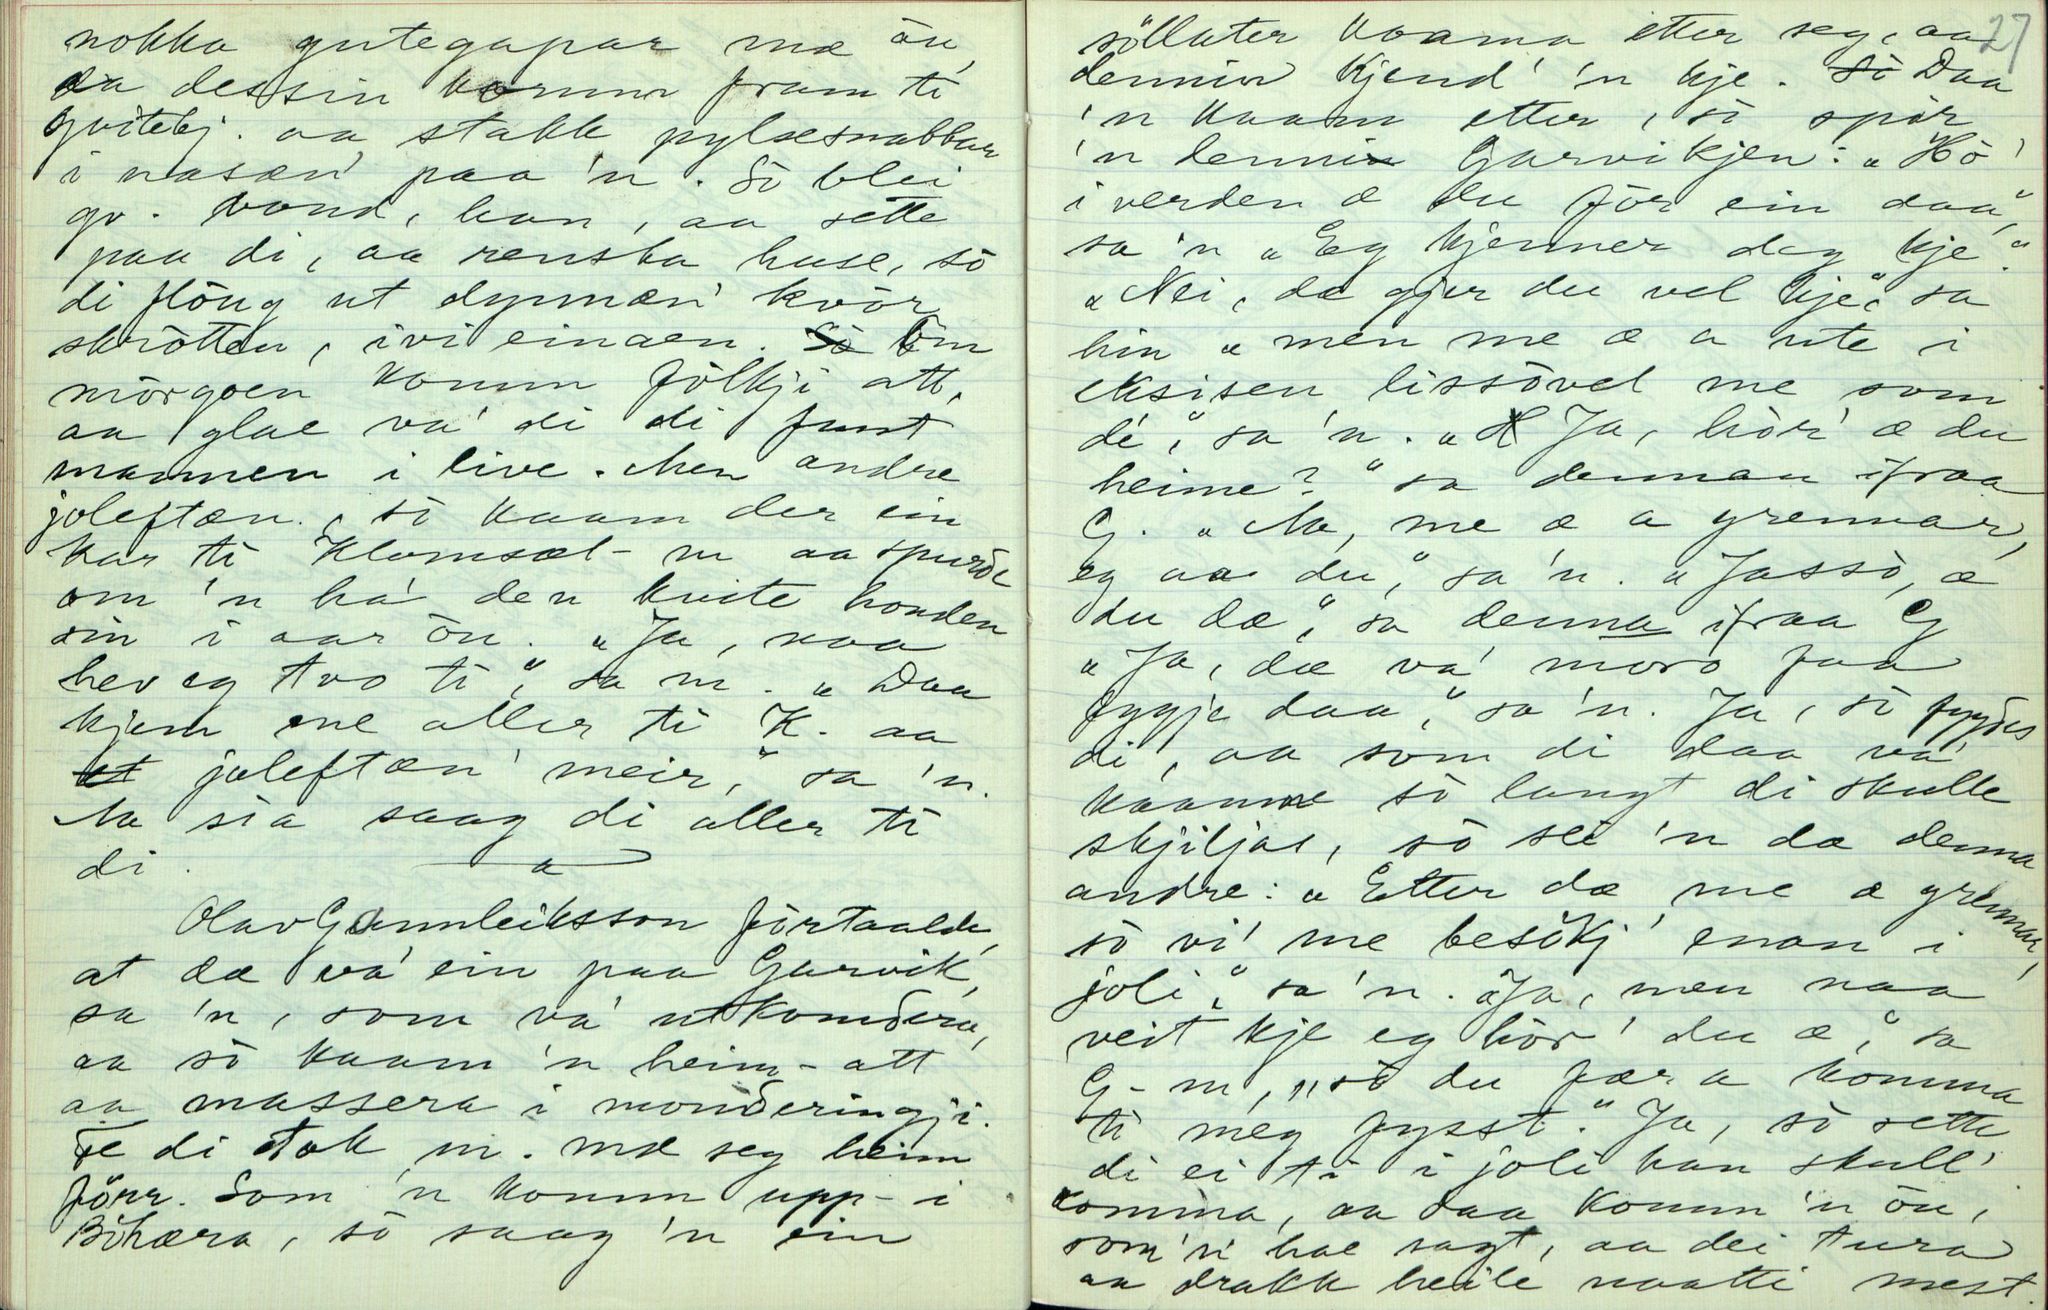 nokka gutegapar mæ òn,
da dessin komm fram ti
gvitebj. aa stakk pylsesnabbar
i nasæn' paa 'n. Sò blei
gv. vond, han, aa sette
paa di, aa renska huse, sò
di flöug ut dynnæn' kvòr
skròtten, ivi einaen. Om
mòrgoen komm fòlkji att,
aa glae va' di di funt
mannen i live. Men andre
joleftæn., sò kaam der ein
kar ti Klomsæt-m aa spurde
om 'n ha' den kvite honden
sin i aar òn. „Ja, naa
hev eg tvo ti," sa m. „Daa
kjem me aller ti K. aa
joleftæn' meir," sa 'n.
Aa sia saag di aller ti
di.
Olav Gunnleiksson fòrtaalde,
at dæ va' ein paa Garvik,
sa 'n, som va' utkomdera,
aa sò kaam 'n heim-att
aa massera i monderingji.
Fe di tok m. mæ seg heim
förr. Som 'n komm upp-i
Böhæra, sò saag 'n ein
27
söllater kaama etter seg, aa
dennin kjend' 'n kje. Daa
'n kaam etter, sò spör
'n dennin Garvikjen: „Hò'
i verden æ du fòr ein daa",
sa 'n „Eg kjenner deg kje."
„Nei, dæ gjer du vel kje", sa
hin „men me æ a ute i
eksisen lissòvel me som
dé", sa 'n. „Ja, hòr' æ du
heime?" sa denman ifraa
G. „Aa, me æ a grennar,
eg aa du," sa 'n. „Jassò, æ
du dæ," sa denna ifraa G
„Ja, dæ va' moro faa
fygje daa," sa 'n. Ja, sò fygdes
di, aa som di daa va'
kaamne sò langt di skulle
skjiljas, sò sei 'n dæ denna
andre: „Etter dæ me æ grennar,
sò vi' me besökj' enan i
joli," sa 'n. „Ja, men naa
veit kje eg hòr' du æ," sa
G-m, „sò du fær a komma
ti meg fysst." Ja, sò sette
di ei ti i joli han skull'
komma, aa daa komm 'n òn,
som 'n' hae sagt, aa dei tura
aa drakk heile naatti mest.